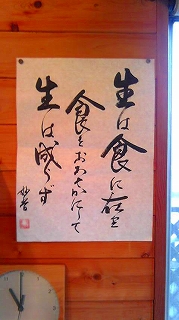 生は食に在り
食をおろそかにして
生は成らず